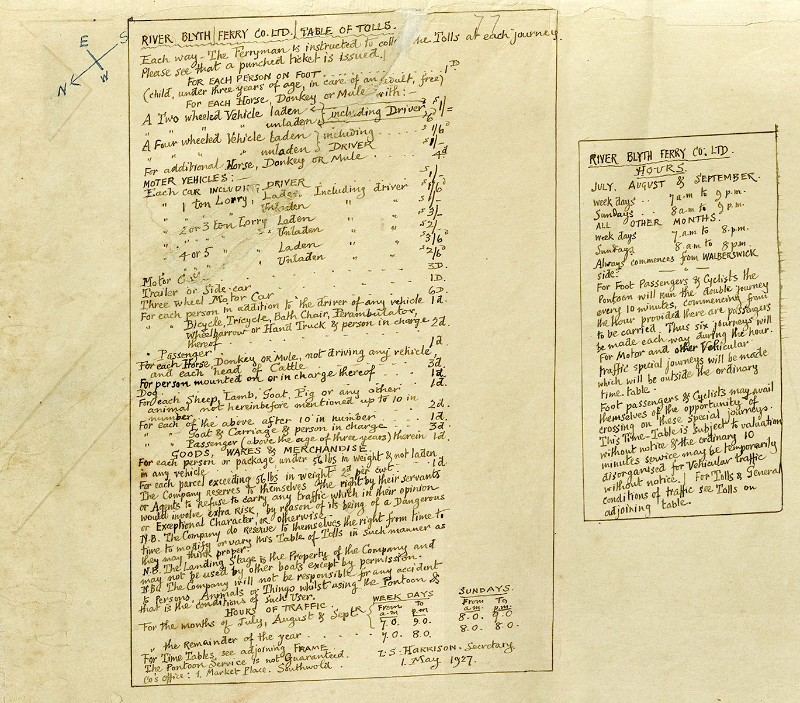 77
E S N W
RIVER BLYTH FERRY CO. LTD. TABLE OF TOLLS.
Each way - The Ferryman is instructed to the Tolls at each journey.
Please see that a punched ticket is issued.
FOR EACH PERSON ON FOOT 1D
(child, under three years of age, in care of an adult, free)
FOR EACH Horse, Donkey or Mule with:-
A Two wheeled Vehicle laden } including Driver 1/=
" " " unladen 6D
A Four wheeled Vehicle laden } including 1/6D
" " " unladen } DRIVER 1/-
For additional Horse, Donkey OR Mule 4d
MOTOR VEHICLES:-
Each car INCLUDING DRIVER 1/-
" 1 ton Lorry, Laden, Including driver 1/6D
" " Unladen " " 1/-
" 2 or 3 ton Lorry Laden " " 3/-
" " Unladen " " 2/-
" 4 or 5 " " Laden " " 3/6D
" " Unladen " " 2/6D
Motor 3D.
Trailer or Side-car 1D.
Three wheel Motor Car 6D.
For each person in addition to the driver of any vehicle 1d.
" Bicycle, Tricycle, Bath Chair, Perambulator,
Wheelbarrow or Hand Truck & person in charge
thereof 2d.
" Passenger 1d
For each Horse, Donkey or Mule, not driving any vehicle,
and each head of Cattle 3d.
For person mounted on or in charge thereof 1d.
Dog 1d.
For each Sheep, Lamb, Goat, Pig or any other
animal not hereinbefore mentioned up to 10 in
number 2d.
For each of the above after 10 in number 1d.
" " Goat & Carriage & person in charge 3d.
" " Passenger (above the age of three years) therein 1d.
GOODS, WARES & MERCHANDISE
For each person or package under 56 lbs in weight & not laden
in any vehicle 1d.
For each parcel exceeding 56 lbs in weight 2d per cwt.
The Company reserves to themselves the right by their servants
or Agents to refuse to carry any traffic which in their opinion
would involve extra Risk, by reason of its being of a Dangerous
or Exceptional Character, or otherwise.
N.B. The Company do reserve to themselves the right from time to
time to modify or vary this Table of Tolls in such manner as
they may think proper.
N.B. The Landing Stage is the Property of the Company and
may not be used by other boats except by permission.
N.B. The Company will not be responsible for any accident
to Persons, Animals or Things whilst using the Pontoon &
that is the conditions of such User.
HOURS OF TRAFFIC. WEEK DAYS SUNDAYS.
From a.m. To p.m. From a.m. To p.m.
For the months of July, August & Septr { 7.0. 9.0. 8.0. 9.0
" the remainder of the year 7.0. 8.0. 8.0. 8.0.
For Time Tables, see adjoining FRAME
The Pontoon Service is not Guaranteed.
Co's Office: 1, Market Place. Southwold.
T.S. HARRISON. Secretary.
1. May 1927.
RIVER BLYTH FERRY CO. LTD.
HOURS.
JULY. AUGUST & SEPTEMBER.
Week days 7 a.m to 9 p.m.
Sundays 8 a.m to 9 p.m.
ALL OTHER MONTHS.
Week days 7 a.m to 8. p.m.
Sundays 8. a.m to 8 p.m.
Always commences from WALBERSWICK
side.
For Foot Passengers & Cyclists the
Pontoon will run the double journey
every 10 minutes, commencing from
the hour provided there are passengers
to be carried. Thus six journeys will
be made each way during the hour.
For Motor and other Vehicular
traffic special journeys will be made
which will be outside the ordinary
time table.
Foot passengers & Cyclists may avail
themselves of the opportunity of
crossing on these special journeys.
This Time-Table is Subject to valuation
without notice & the ordinary 10
minutes service may be temporarily
disorganised for Vehicular traffic
without notice. For Tolls & General
conditions of traffic see Tolls on
adjoining table.